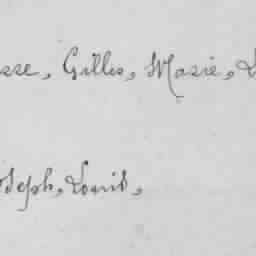 sse, Gilles, Marie, L
oseph, Louis,